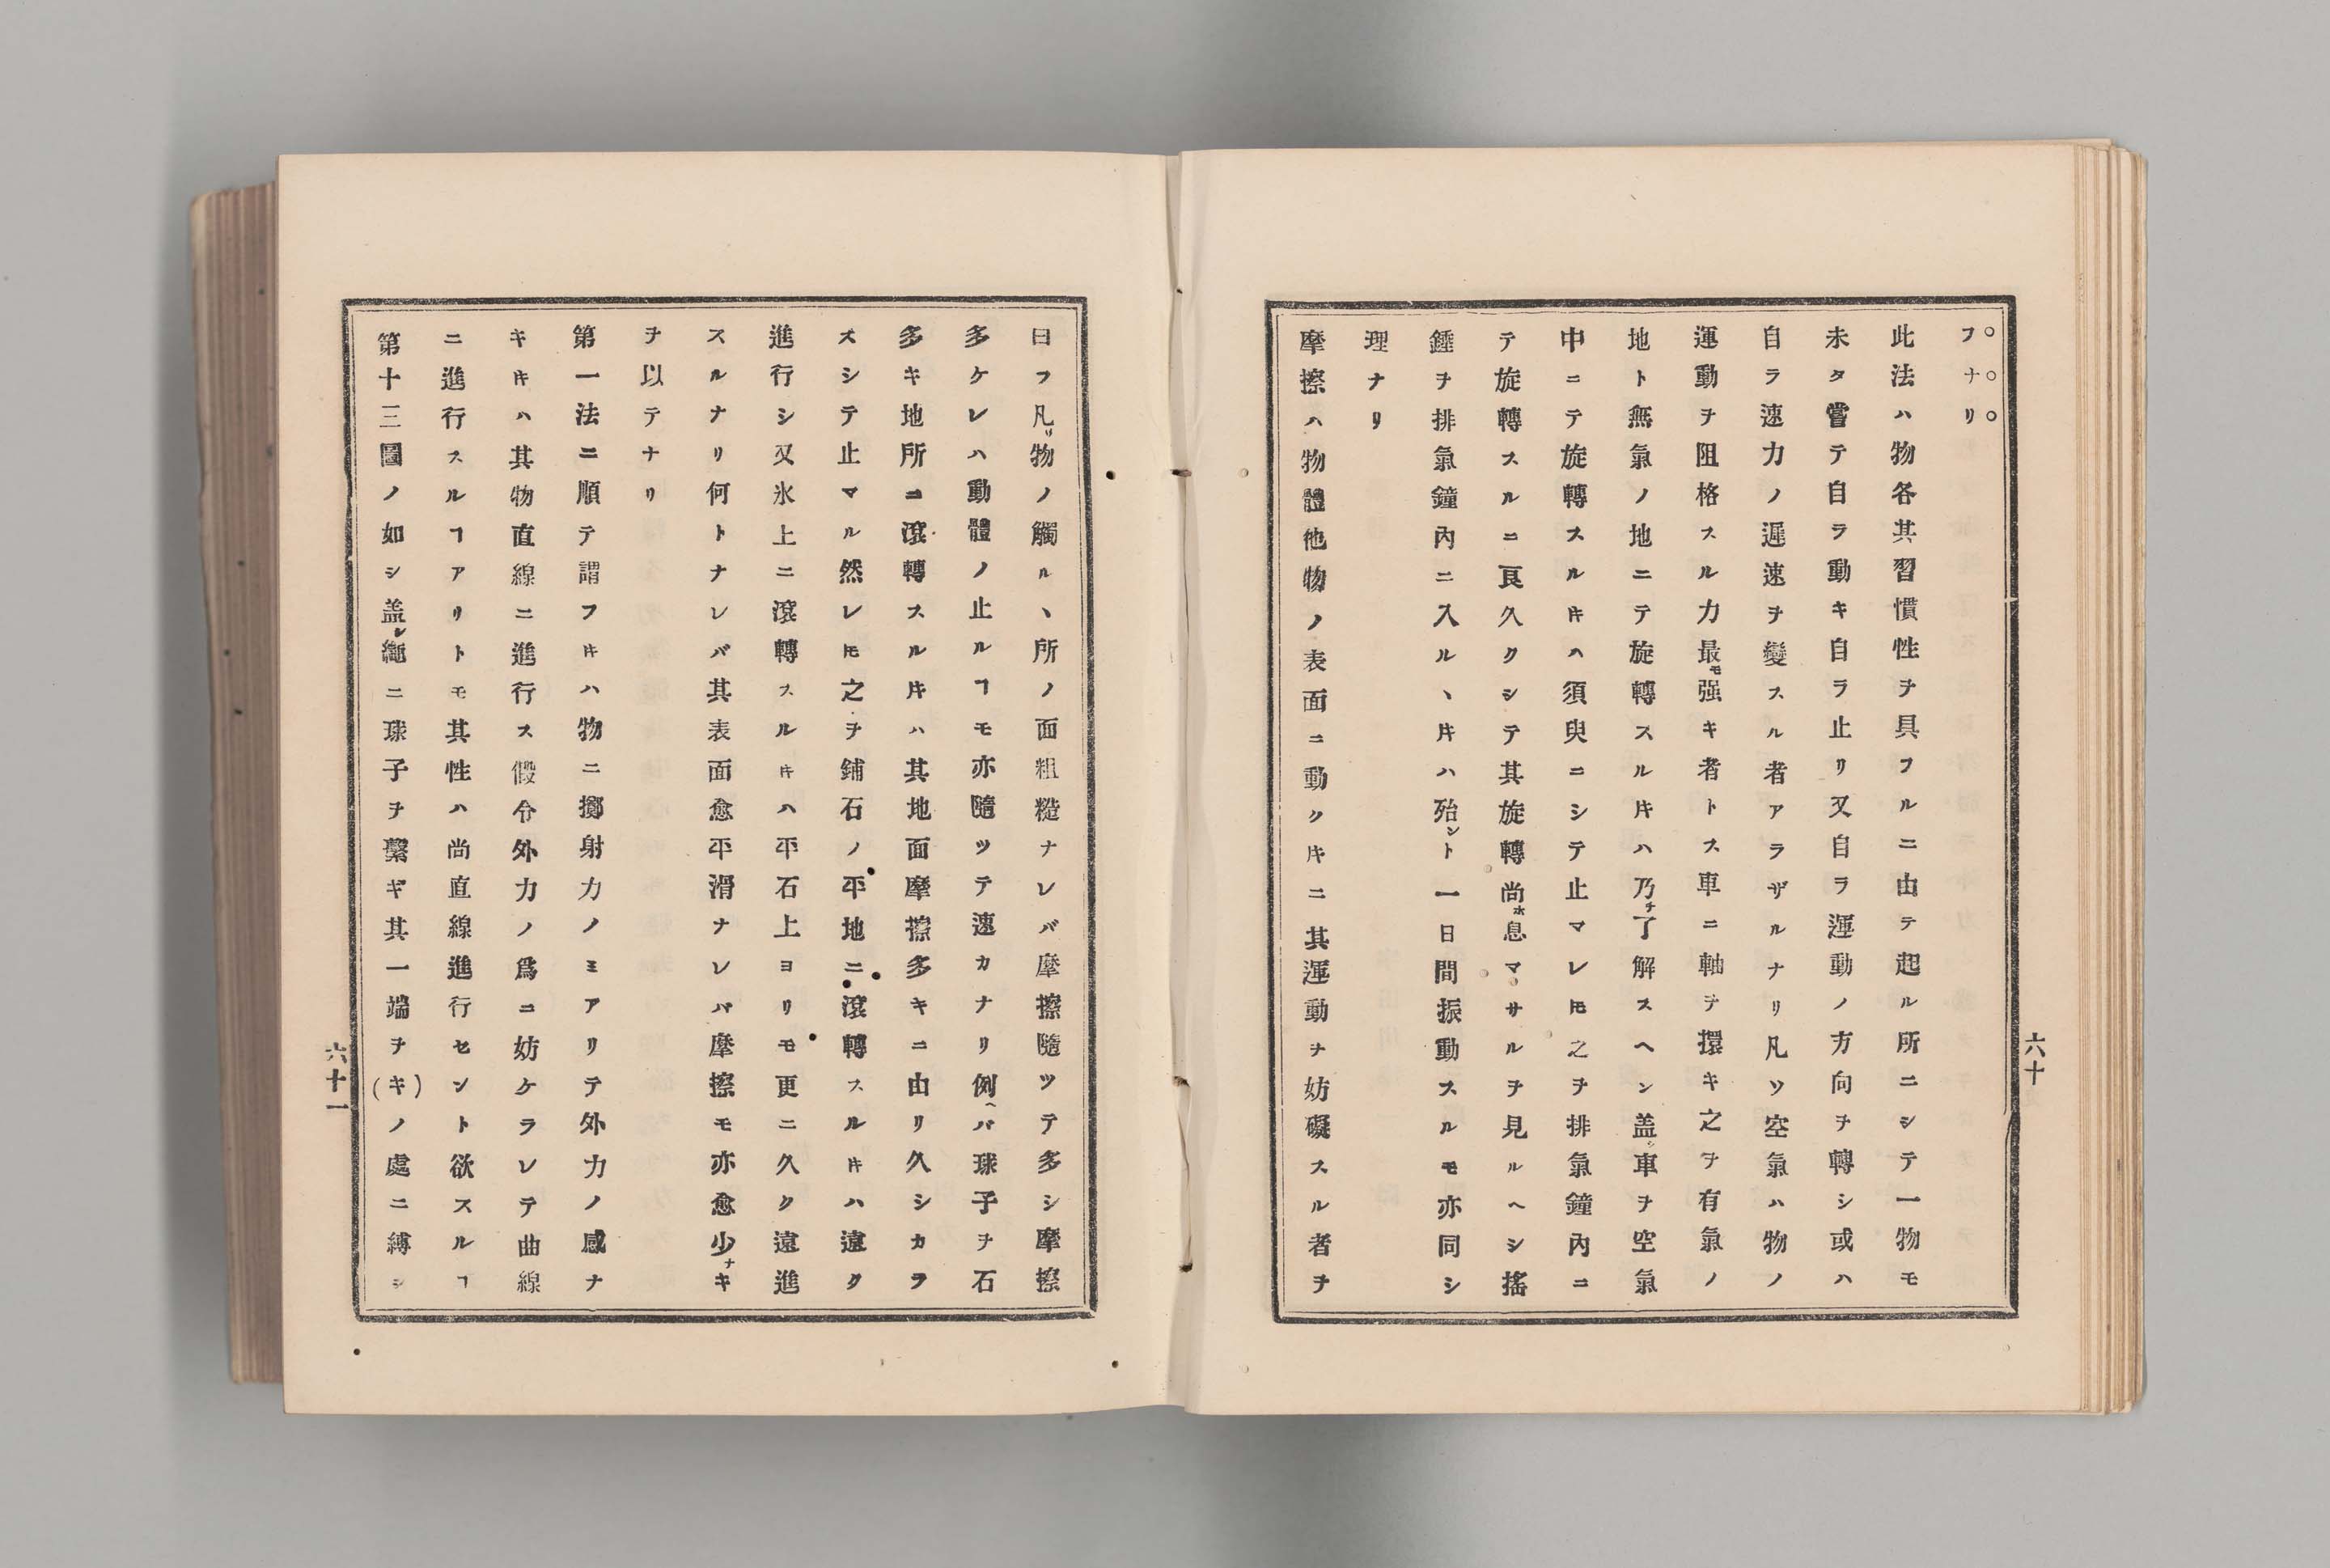 フナリ
此法ハ物各其習慣性ヲ具フルニ由テ起ル所ニシテ一物モ
未タ嘗テ自ラ動キ自ラ止リ又自ラ運動ノ方向ヲ轉シ或ハ
自ラ速力ノ遲速ヲ變スル者アラザルナリ凡ソ空氣ハ物ノ
運動ヲ阻格スル力最モ强キ者トス車ニ軸ヲ環キ之ヲ有氣ノ
地ト無氣ノ地ニテ旋轉スル𪜈ハ乃チ了解スヘシ盖シ車ヲ空氣
中ニテ旋轉スルキハ須臾ニシテ止マレ𪜈之ヲ排氣鐘內ニ
テ旋轉スルニ良久クシテ其旋轉尚ホ息マサルヲ見ルヘシ搖
錘ヲ排氣鐘內ニ入ルヽ片ハ殆ント一日間振動スルモ亦同シ
理ナリ
摩擦ハ物體他物ノ表面ニ動ク片ニ其運動ヲ妨礙スル者ヲ
六十
曰フ凡リ物ノ觸ルヽ所ノ面粗糙ナレバ摩擦隨ツテ多シ摩擦
多ケレハ動體ノ止ルヿモ亦隨ツテ速カナリ例ヘバ球子ヲ石
多キ地所ニ滾轉スル片ハ其地面摩擦多キニ由リ久シカラ
ズシテ止マル然レ𪜈之ヲ鋪石ノ平地ニ滾轉スル片ハ遠ク
進行シ又氷上ニ滾轉スル片ハ平石上ヨリモ更ニ久ク遠進
スルナリ何トナレバ其表面愈平滑ナレバ摩擦モ亦愈少ナキ
ヲ以テナリ
第一法ニ順テ謂フ片ハ物ニ擲射力ノミアリテ外力ノ感ナ
キ片ハ其物直線ニ進行ス假令外力ノ爲ニ妨ケラレテ曲線
ニ進行スルヿアリトモ其性ハ尚直線進行センド欲スルヿ
第十三圖ノ如シ盖シ繩ニ球子ヲ繫ギ其一端ヲ(キ)ノ處ニ縛シ
六十一